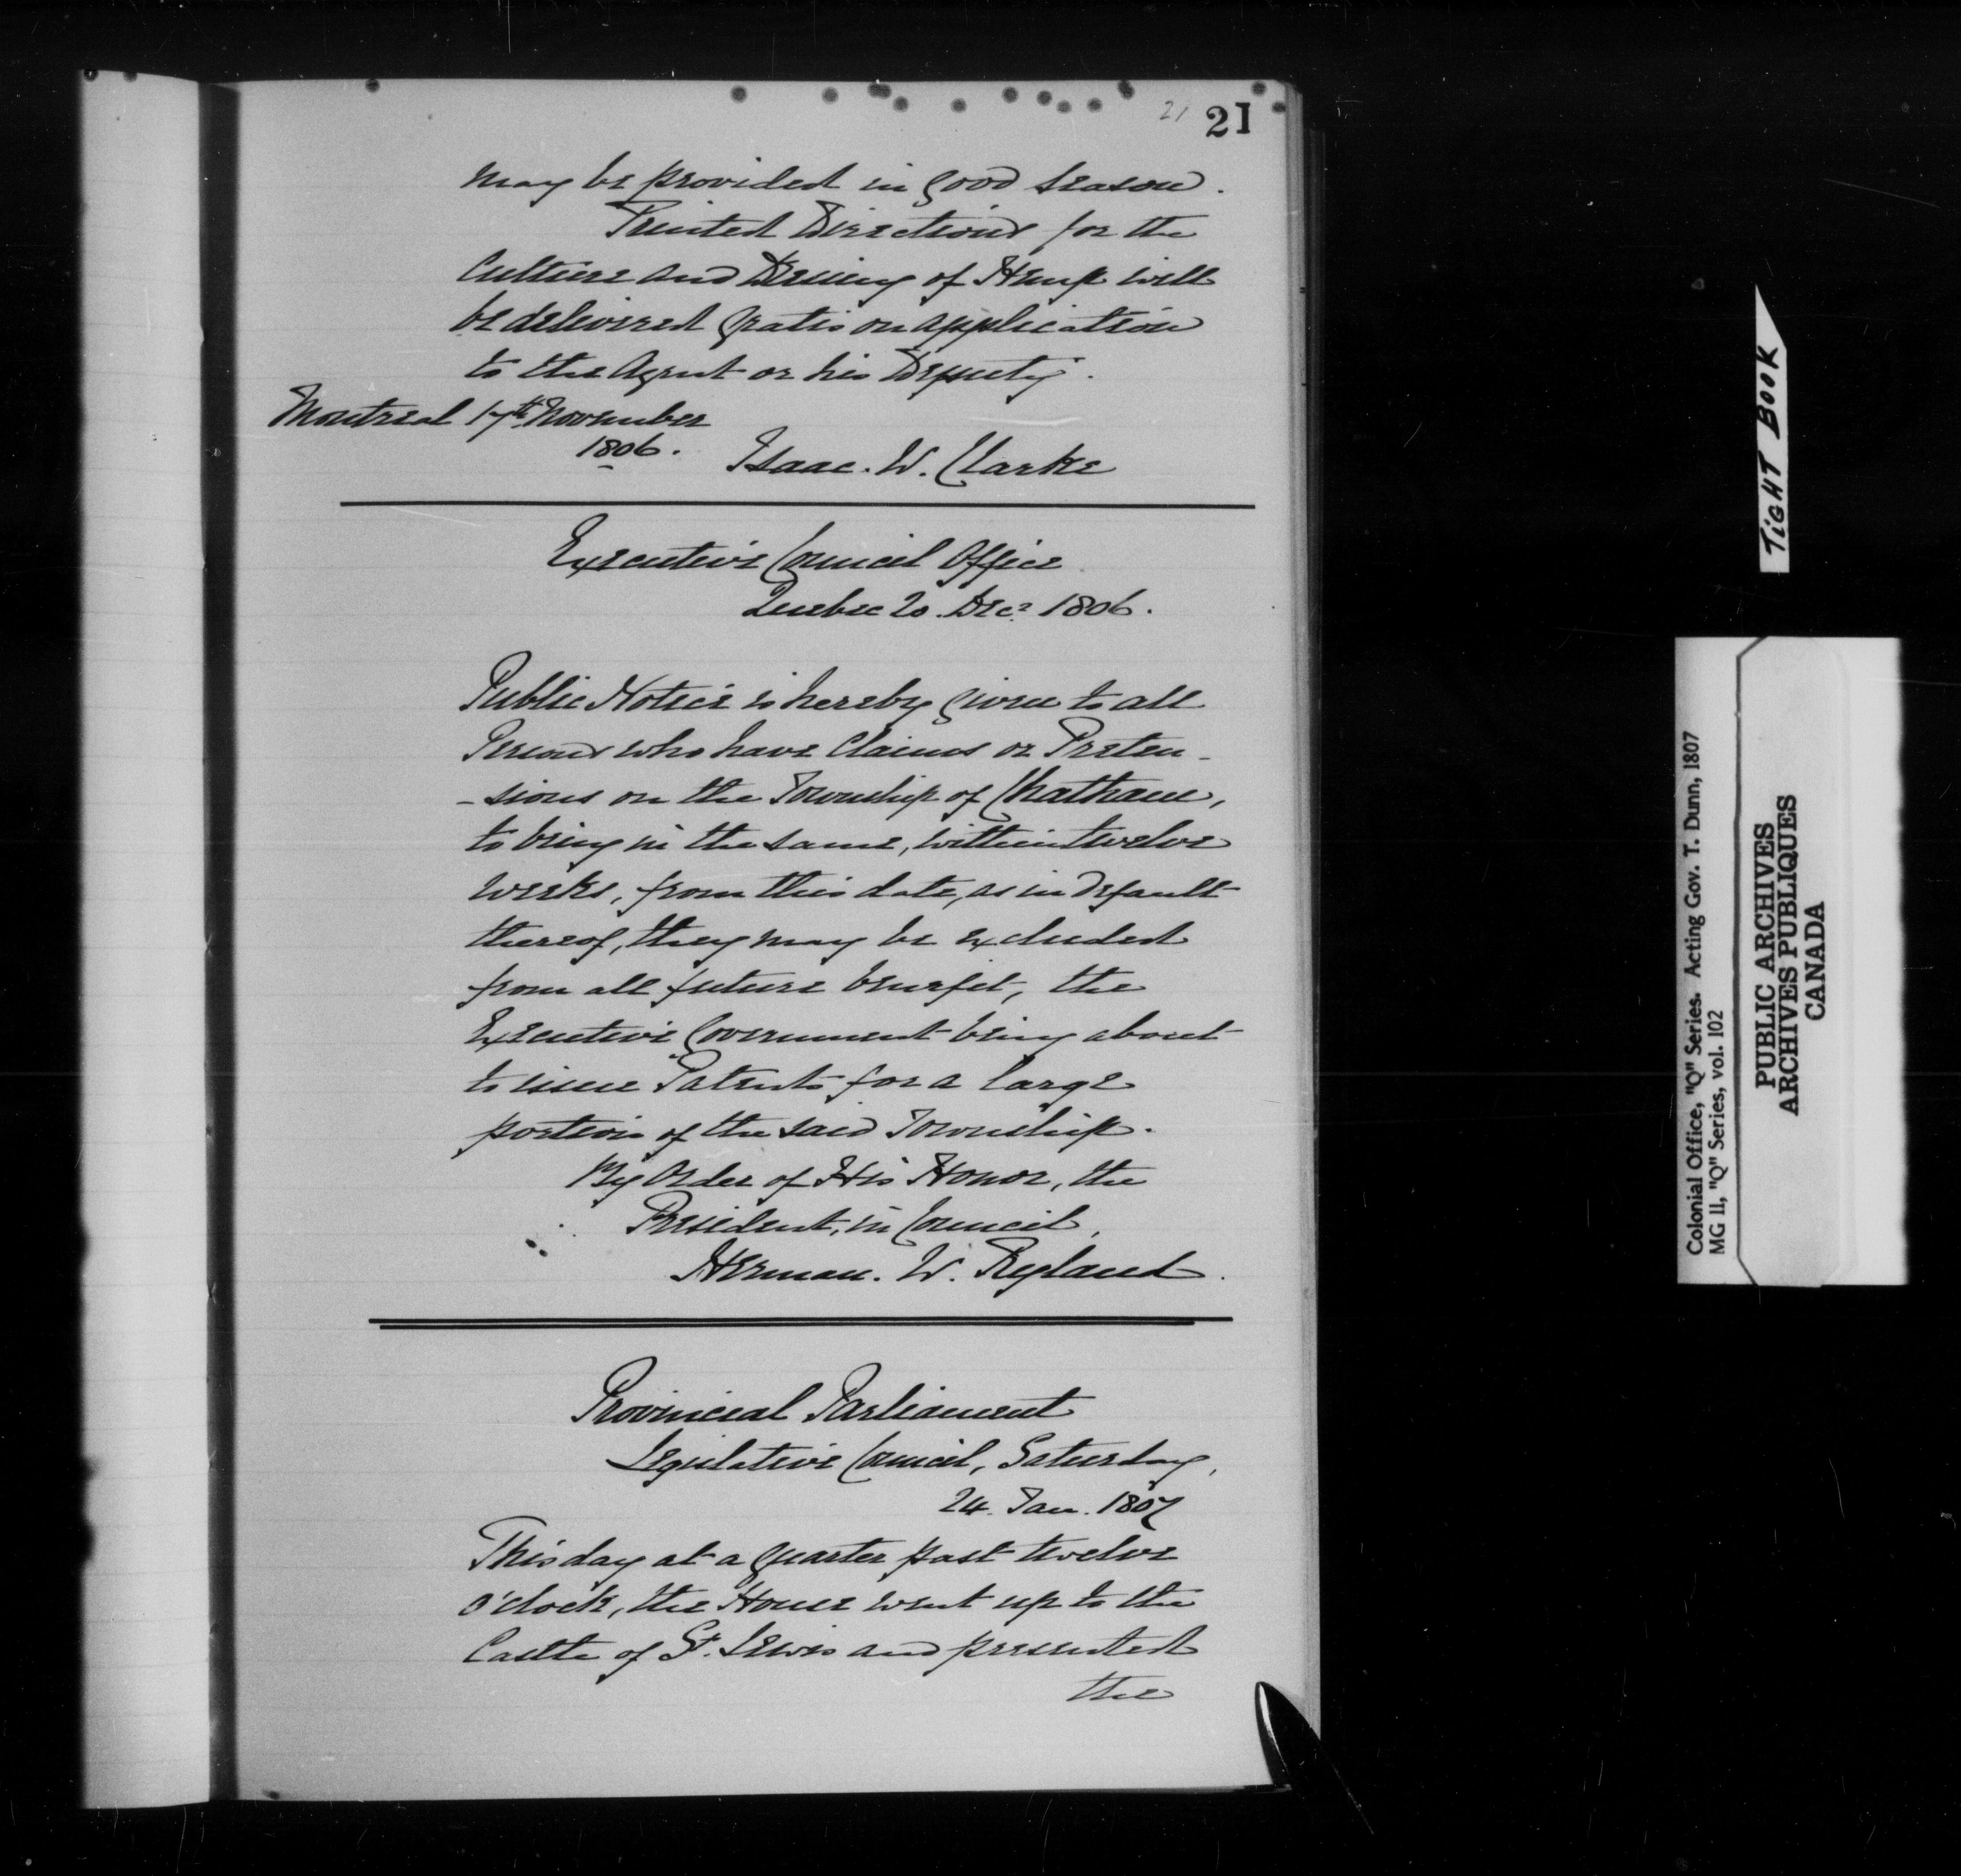 21 21
may be provided in good season.
Printed Directions for the
Culture and Drying of Hemp will
be delivered gratis on application
to the Agent or his Deputy.
Montreal 17th November
1806.
Isaac. W. Clarke
Executive Council Office
Quebec 20. Decr 1806.
Public Notice is hereby given to all
Persons who have Claims or Preten-
-sions on the Township of Chatham,
to bring in the same, within twelve
weeks, from this date, as in default
thereof, they may be excluded
from all future benefit, the
Executive Government being about
to issue Patents for a large
portion of the said Township.
By Order of His Honor, the
President, in Council,
Herman. W. Ryland.
Provincial Parliament
Legislative Council, Saturday,
24. Jan. 1807
This day at a quarter past twelve
o'clock, the House went up to the
Castle of St. Lewis and presented
the
TIGHT BOOK
Colonial Office, "Q" Series. Acting Gov. T. Dunn, 1807
MG 11, "Q" Series, vol. 102
PUBLIC ARCHIVES
ARCHIVES PUBLIQUES
CANADA